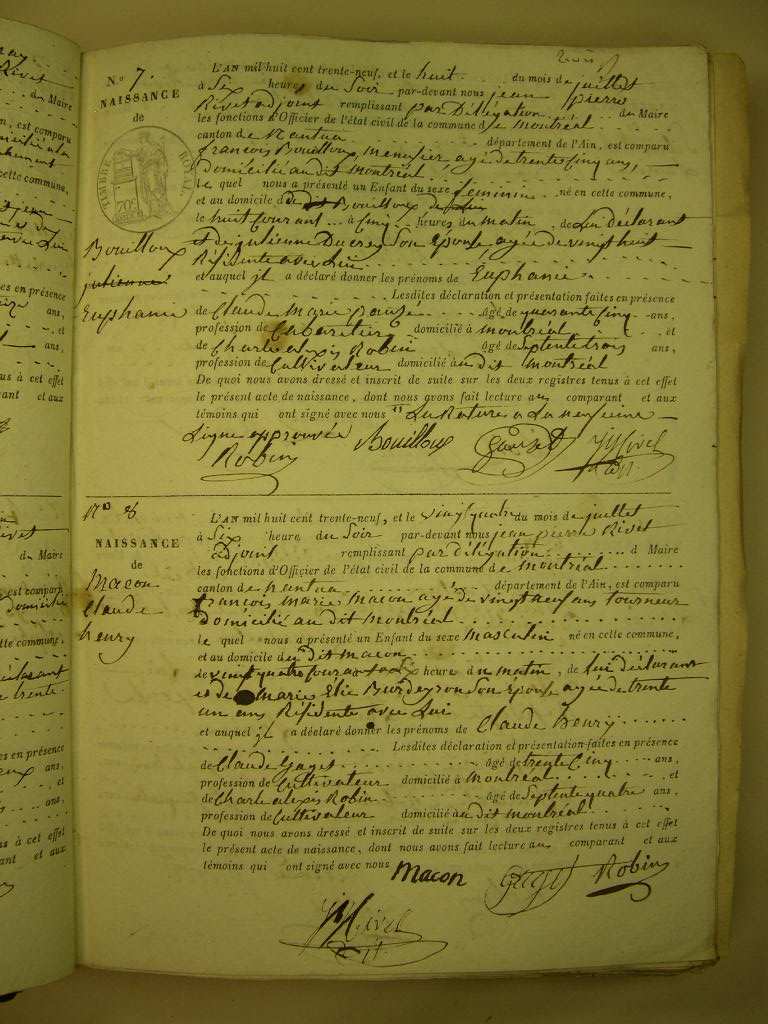 N° 7.
NAISSANCE
de
TIMBRE ROYAL
Bouilloux
julienne
Euphanie
L'AN mil huit cent trente-neuf, et le huit du mois de juillet
à Six heures du Soir par-devant nous jean pierre
Rivet adjoint remplissant par Délégation du Maire
les fonctions d'Officier de l'état civil de la commune de montréal
canton de Nantua département de l'Ain, est comparu
françois Bouilloux, menusier agé de trente Cinq ans,
domicilié au dit montréal
le quel nous a présenté un Enfant du sexe feminin né en cette commune,
et au domicile du dit Bouilloux
le huit Courant à Cinq heures du matin, de Lui déclarant
et de julienne Ducrey Son épouse, agée de vingt huit
Résidente avec Lui
et auquel il a déclaré donner les prénoms de Euphanie
Lesdites déclaration et présentation faites en présence
de Claude Marie âgé de quarante Cinq ans,
profession de Cabaretier domicilié à montréal et
de Charle alexis Robin âgé de Septente trois ans,
profession de Cultivateur domicilié au dit montréal
De quoi nous avons dressé et inscrit de suite sur les deux registres tenus à cet effet
le présent acte de naissance, dont nous avons fait lecture aux comparant et aux
témoins qui ont signé avec nous La Rature a La neuvieme
Ligne approuvée Bouilloux
Robin
N° 8
NAISSANCE
de
Macon
Claude
henry
L'AN mil huit cent trente-neuf, et le vingt quatre du mois de juillet
à Six heure du Soir par-devant nous jean pierre Rivet
adjoint remplissant par délégation d Maire
les fonctions d'Officier de l'état civil de la commune de montréal
canton de nantua département de l'Ain, est comparu
françois Marie Macon agé de vingt neuf ans tourneur
domicilié au dit Montréal
le quel nous a présenté un Enfant du sexe masculin né en cette commune,
et au domicile du dit Macon
le vingt quatre Courant a Six heure du matin, de Lui déclarant
et de Marie Elie Burdeyron Son épouse agée de trente
un ans Résidente avec Lui
et auquel il a déclaré donner les prénoms de Claude henry
Lesdites déclaration et présentation faites en présence
de Claude Gaget âgé de trente Cinq ans,
profession de Cultivateur domicilié à Montréal et
de Charle alexis Robin âgé de Septente quatre ans,
profession de Cultivateur domicilié au dit montréal
De quoi nous avons dressé et inscrit de suite sur les deux registres tenus à cet effet
le présent acte de naissance, dont nous avons fait lecture aux comparant et aux
témoins qui ont signé avec nous Macon Gaget Robin
JP Rivet